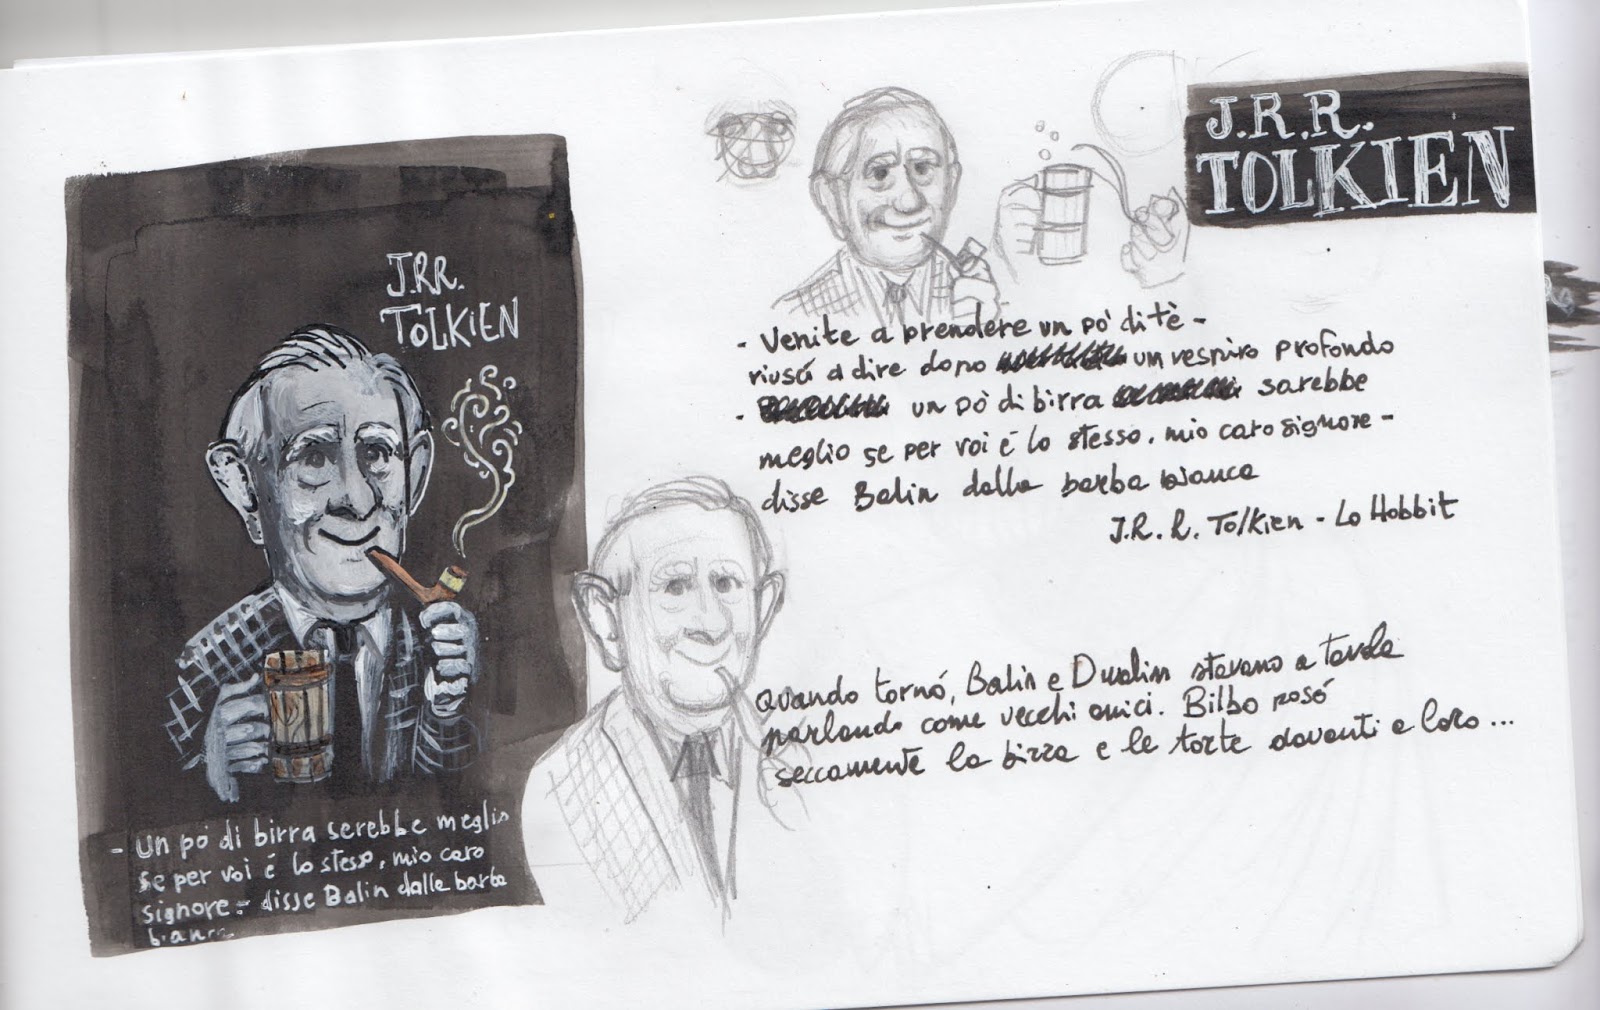 J.RR.
TOLKIEN
- un pò di birra serebbe meglio
se per voi é lo stesso, mio caro
signore - disse Balin dalla barba
bianca
J.R.R.
TOLKIEN
- Venite a prendere un pò di tè -
riuscí a dire dopo un respiro profondo
- un pò di birra sarebbe
meglio se per voi é lo stesso, mio caro signore -
disse Balin dalla barba bianca
J.R.R. Tolkien - Lo Hobbit
Quando tornó, Balin e Dwalin stavano a tavola
parlando come vecchi amici. Bilbo posó
seccamente la birra e le torte davanti a loro ...